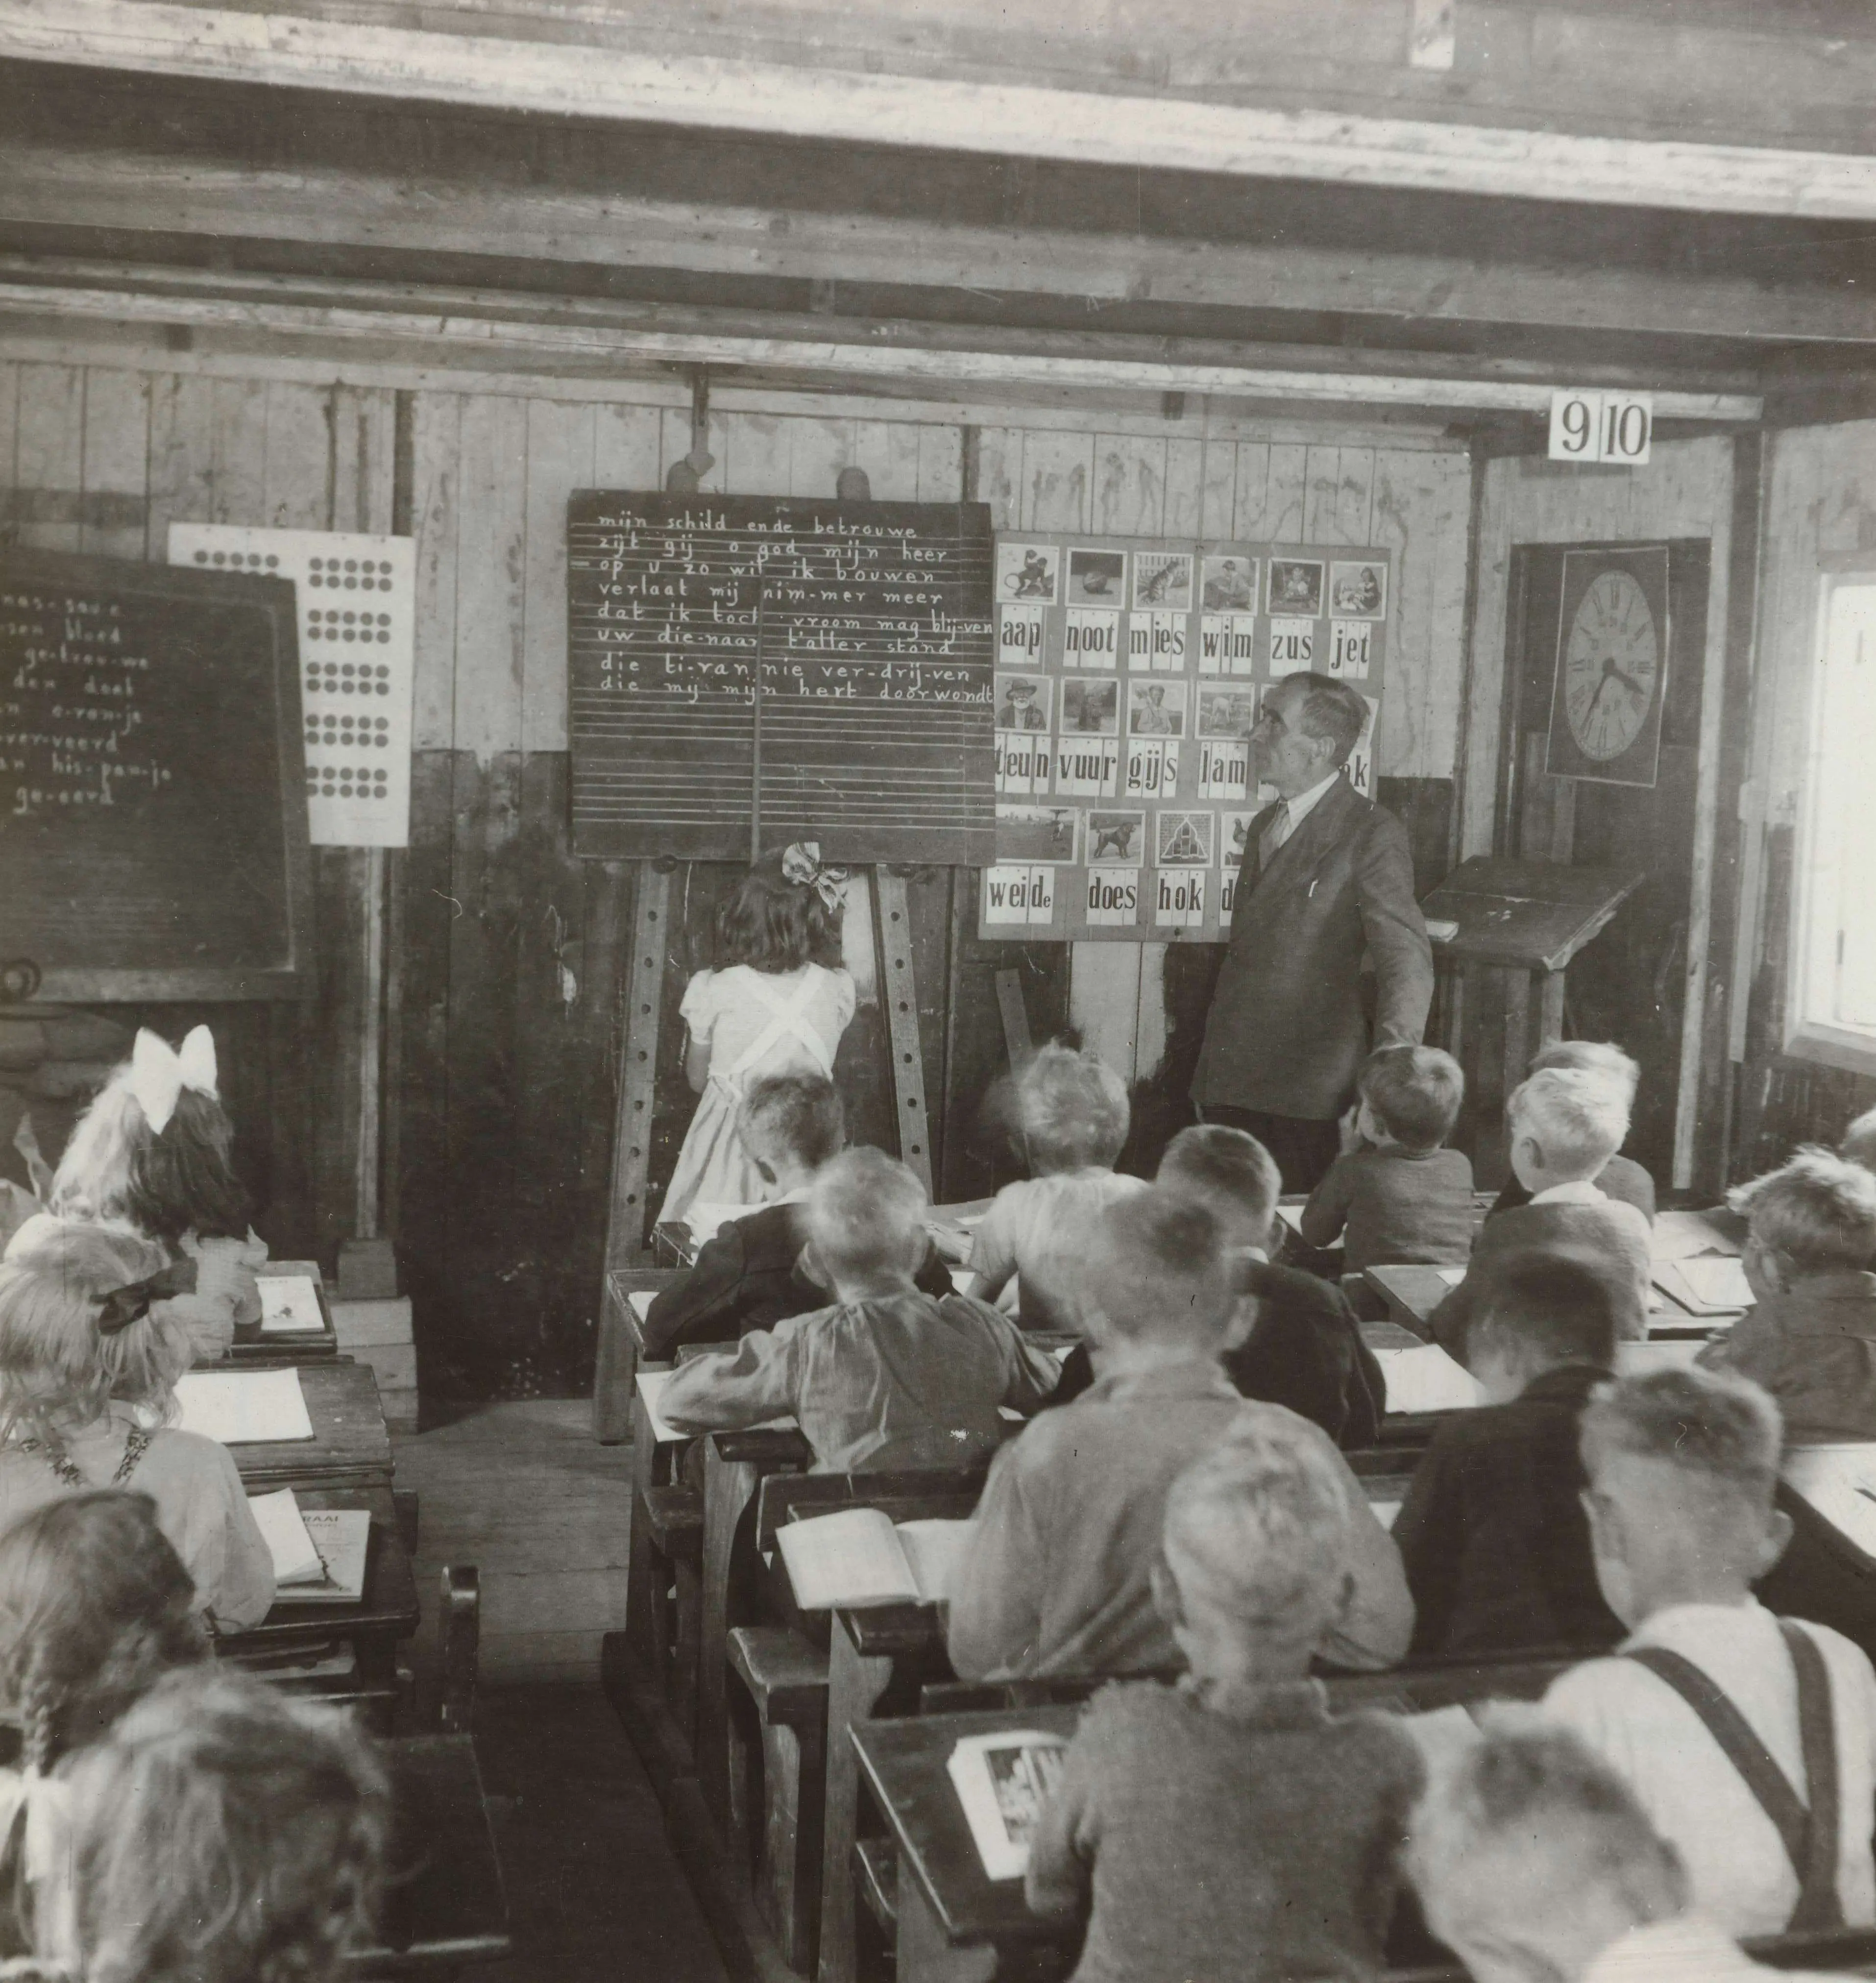 9 10
mijn schild ende betrouwe
zijt gij o god mijn heer
op u zo wil ik bouwen
verlaat mij nim-mer meer
dat ik toch vroom mag blij-ven
uw die-naar t'aller stond
die ti-ran nie ver-drij-ven
die mij mijn hert doorwondt
nas-sau-e
bloed
ge-trou-we
den dood
o-ran-je
ver-veerd
his-pan-je
ge-eerd
aap noot mies wim zus jet
teun vuur gijs lam
weide does hok d
RAAI